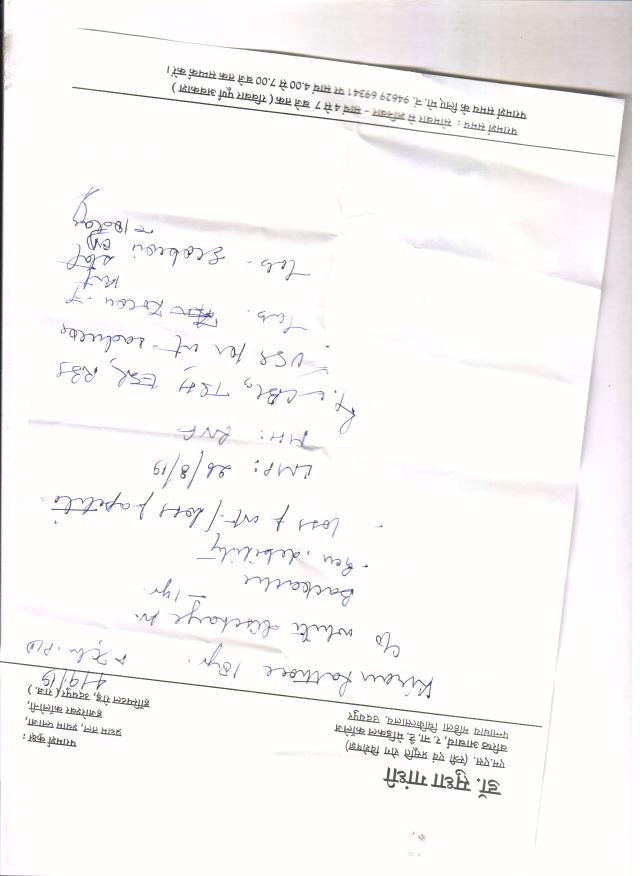 डॉ. सुधा गांधी
एम.एस. (स्त्री एवं प्रसूति रोग विशेषज्ञ)
वरिष्ठ आचार्य, र. ना. टै. मेडिकल कॉलेज
पन्नाधाय महिला चिकित्सालय, उदयपुर
परामर्श कक्ष :
प्रथम तल, श्याम प्लाजा,
हजारेश्वर कॉलोनी,
हॉस्पिटल रोड़, उदयपुर ( राज. )
4/9/19
Kiran 18yr.
c/o white discharge PV
Backache - 1yr.
- Gen. debility
- loss of wt / loss of apetite.
LMP: 26/8/19
MH:
Rx CBC, TSH, ESR, RBS
USG for
Tab.
Tab.
परामर्श समय : सोमवार से शनिवार - सायं 4 से 7 बजे तक ( रविवार पूर्ण अवकाश )
परामर्श समय के लिए मो. नं. 94629 69341 पर सायं 4.00 से 7.00 बजे तक सम्पर्क करें।